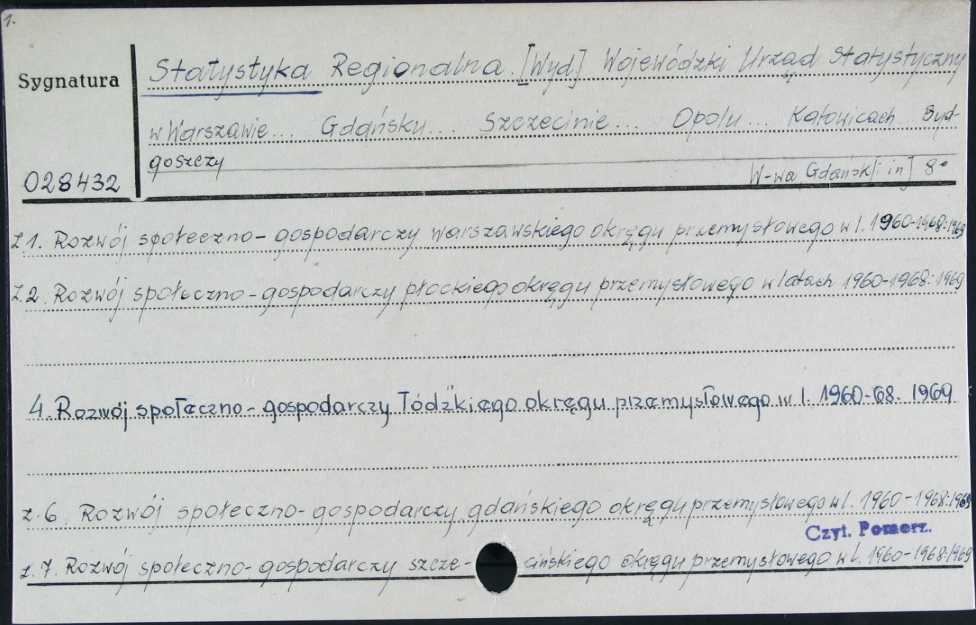 1.
Sygnatura
Statystyka Regionalna. [Wyd] Wojewódzki Urząd Statystyczny
w Warszawie... Gdańsku... Szczecinie... Opolu... Katowicach Byd-
goszczy
028432
W-wa Gdańsk [i in] 8°
z 1. Rozwój społeczno-gospodarczy warszawskiego okręgu przemysłowego w l. 1960-1968: 1969
z 2. Rozwój społeczno-gospodarczy płockiego okręgu przemysłowego w latach 1960-1968: 1969
4. Rozwój społeczno-gospodarczy łódzkiego okręgu przemysłowego w l. 1960-68. 1969
z. 6. Rozwój społeczno-gospodarczy gdańskiego okręgu przemysłowego w l. 1960-1968: 1969
Czyt. Pomorz.
z. 7. Rozwój społeczno-gospodarczy szcze- cińskiego okręgu przemysłowego w l. 1960-1968: 1969